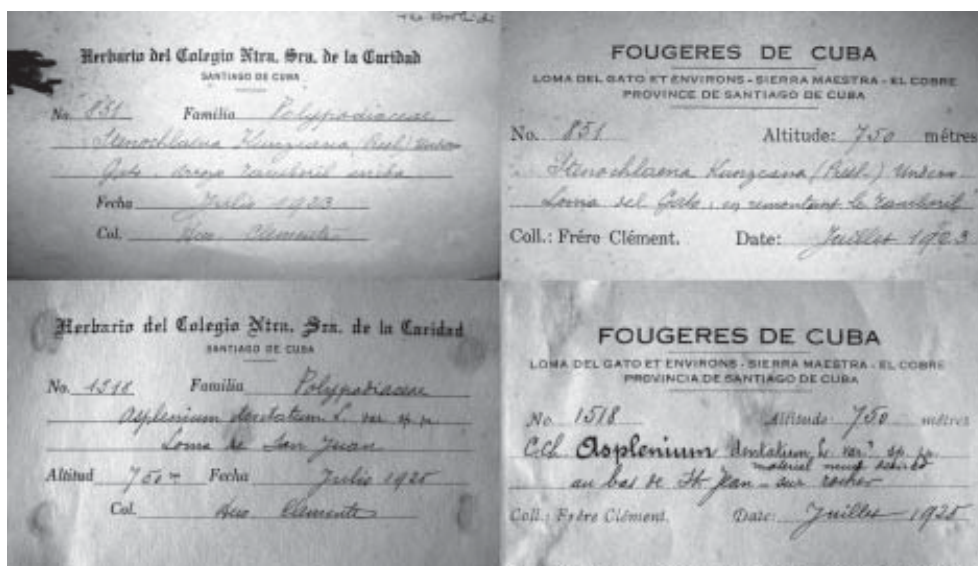 Herbario del Colegio Ntra. Sra. de la Caridad
SANTIAGO DE CUBA
No. 851 Familia Polypodiaceae
Stenochlaena Kunzeana (Presl) Underw
Gato, arroyo Tamboril arriba
Fecha Julio 1923
Col. Hno Clemente
FOUGERES DE CUBA
LOMA DEL GATO ET ENVIRONS - SIERRA MAESTRA - EL COBRE
PROVINCE DE SANTIAGO DE CUBA
No. 851 Altitude: 750 métres
Stenochlaena Kunzeana (Presl.) Underw
Loma del Gato, en remontant le Tamboril
Coll.: Frére Clément. Date: Juillet 1923
Herbario del Colegio Ntra. Sra. de la Caridad
SANTIAGO DE CUBA
No. 1518 Familia Polypodiaceae
Asplenium dentatum L. var sp. n.
Loma de San Juan
Altitud 750 m Fecha Julio 1925
Col. Hno Clemente
FOUGERES DE CUBA
LOMA DEL GATO ET ENVIRONS - SIERRA MAESTRA - EL COBRE
PROVINCIA DE SANTIAGO DE CUBA
No. 1518 Altitude: 750 métres
C.Ch. Asplenium dentatum L. var? sp.
material
au bas de St Jean - sur rocher
Coll.: Frére Clément. Date: Juillet 1925